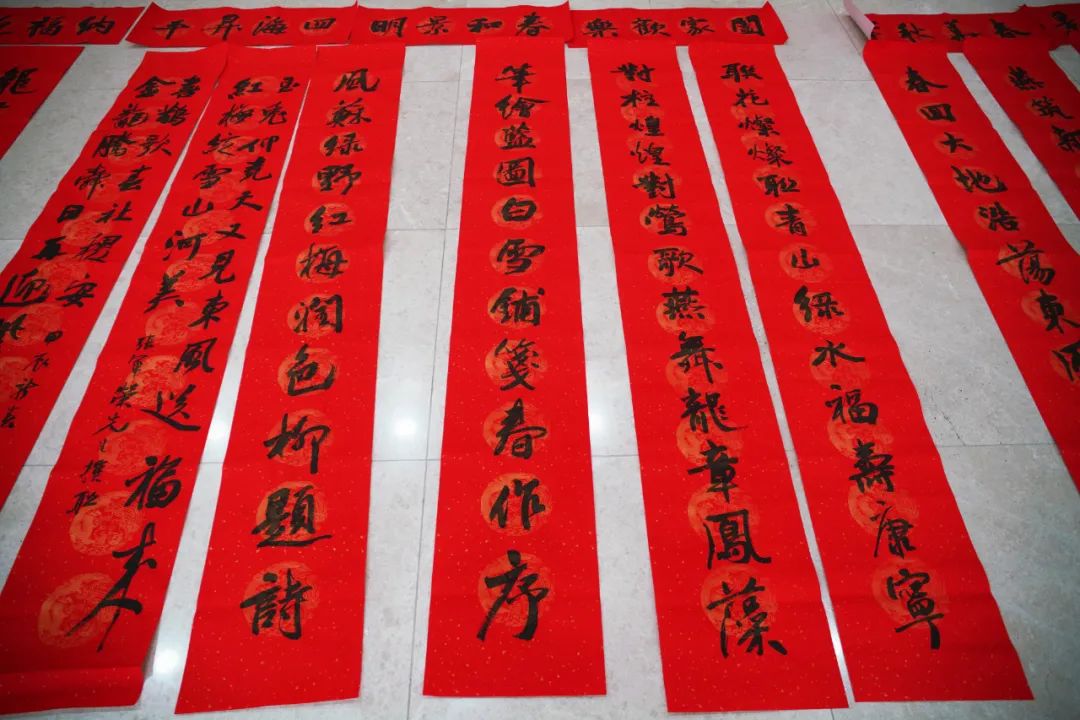 春華秋
闔家歡樂
春和景明
四海昇平
納福
燕筑
春回大地浩蕩東風
聯燦燦聯青山綠水福壽康寧
對柱煌煌對鶯歌燕舞龍章鳳藻
筆繪藍圖白雪鋪箋春作序
風蘇綠野紅梅潤色柳題詩
玉兔仰堯天又見東風送福來
紅梅綻雪山河美
張軍榮先生撰聯
喜鵲歌春社稷安
金龍騰日再迎
甲辰新春
龍